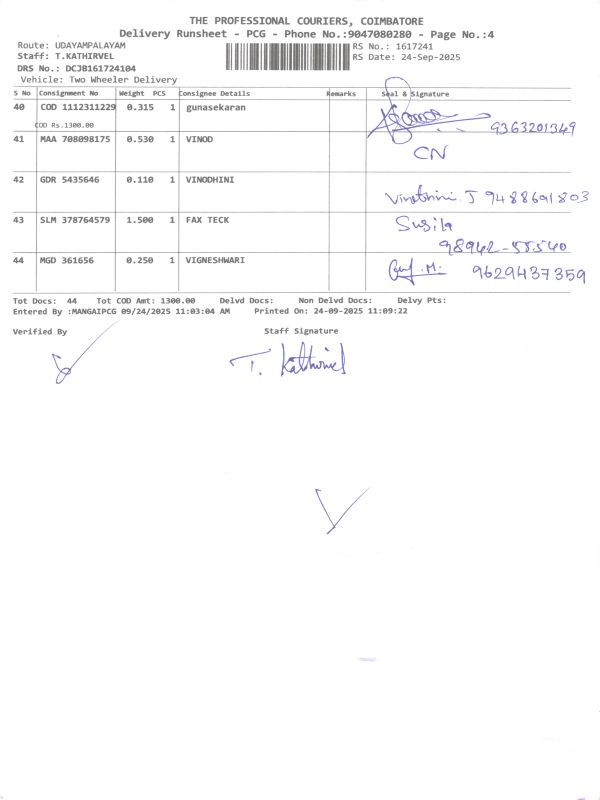 THE PROFESSIONAL COURIERS, COIMBATORE
Delivery Runsheet - PCG - Phone No.:9047080280 - Page No.:4
Route: UDAYAMPALAYAM
RS No.: 1617241
Staff: T.KATHIRVEL
RS Date: 24-Sep-2025
DRS No.: DCJB161724104
Vehicle: Two Wheeler Delivery
S No Consignment No Weight PCS Consignee Details Remarks Seal & Signature
40 COD 1112311229 0.315 1 gunasekaran
COD Rs.1300.00 9363201349
41 MAA 708098175 0.530 1 VINOD CN
42 GDR 5435646 0.110 1 VINODHINI
Vinothini. J 9488691803
43 SLM 378764579 1.500 1 FAX TECK Susila
98942-55540
44 MGD 361656 0.250 1 VIGNESHWARI 9629437359
Tot Docs: 44 Tot COD Amt: 1300.00 Delvd Docs: Non Delvd Docs: Delvy Pts:
Entered By :MANGAIPCG 09/24/2025 11:03:04 AM Printed On: 24-09-2025 11:09:22
Verified By Staff Signature
T. Kathirvel